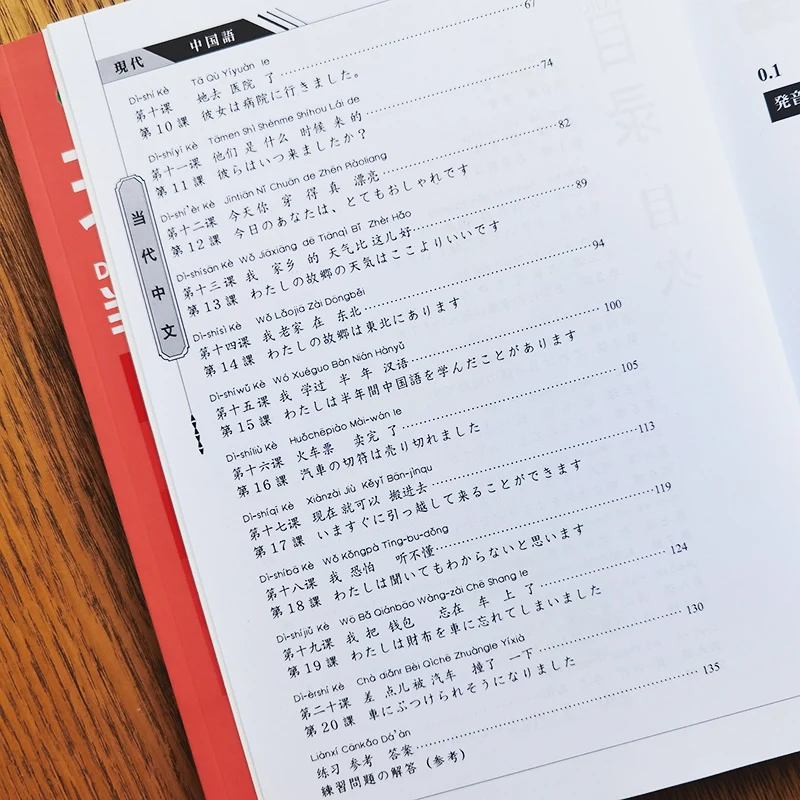 現代 中国語
Dì-shí Kè Tā Qù Yīyuàn le 67
第十课 她去 医院 了
第10課 彼女は病院に行きました。
Dì-shíyī Kè Tāmen Shì Shénme Shíhou Lái de 74
第十一课 他们 是 什么 时候 来 的
第11課 彼らはいつ来ましたか？
Dì-shí'èr Kè Jīntiān Nǐ Chuān de Zhēn Piàoliang 82
第十二课 今天你 穿 得 真 漂亮
第12課 今日のあなたは、とてもおしゃれです
Dì-shísān Kè Wǒ Jiāxiāng de Tiānqì Bǐ Zhèr Hǎo 89
第十三课 我 家乡 的 天气比 这儿好
第13課 わたしの故郷の天気はここよりいいです
Dì-shísì Kè Wǒ Lǎojiā Zài Dōngběi 94
第十四课 我 老家 在 东北
第14課 わたしの故郷は東北にあります
Dì-shíwǔ Kè Wǒ Xuéguo Bàn Nián Hànyǔ 100
第十五课 我 学过 半 年 汉语
第15課 わたしは半年間中国語を学んだことがあります
Dì-shíliù Kè Huǒchēpiào Mài-wán le 105
第十六课 火车票 卖完 了
第16課 汽車の切符は売り切れました
Dì-shíqī Kè Xiànzài Jiù Kěyǐ Bān-jìnqu 113
第十七课 现在 就可以 搬进去
第17課 いますぐに引っ越して来ることができます
Dì-shíbā Kè Wǒ Kǒngpà Tīng-bu-dǒng 119
第十八课 我 恐怕 听不懂
第18課 わたしは聞いてもわからないと思います
Dì-shíjiǔ Kè Wǒ Bǎ Qiánbāo Wàng-zài Chē Shang le 124
第十九课 我 把 钱包 忘在 车 上 了
第19課 わたしは財布を車に忘れてしまいました
Dì-èrshí Kè Chà diǎnr Bèi Qìchē Zhuàngle Yíxià 130
第二十课 差 点儿 被 汽车 撞了 一下
第20課 車にぶつけられそうになりました
Liànxí Cānkǎo Dá'àn 135
练习 参考 答案
練習問題の解答（参考）
当代中文
0.1
発音